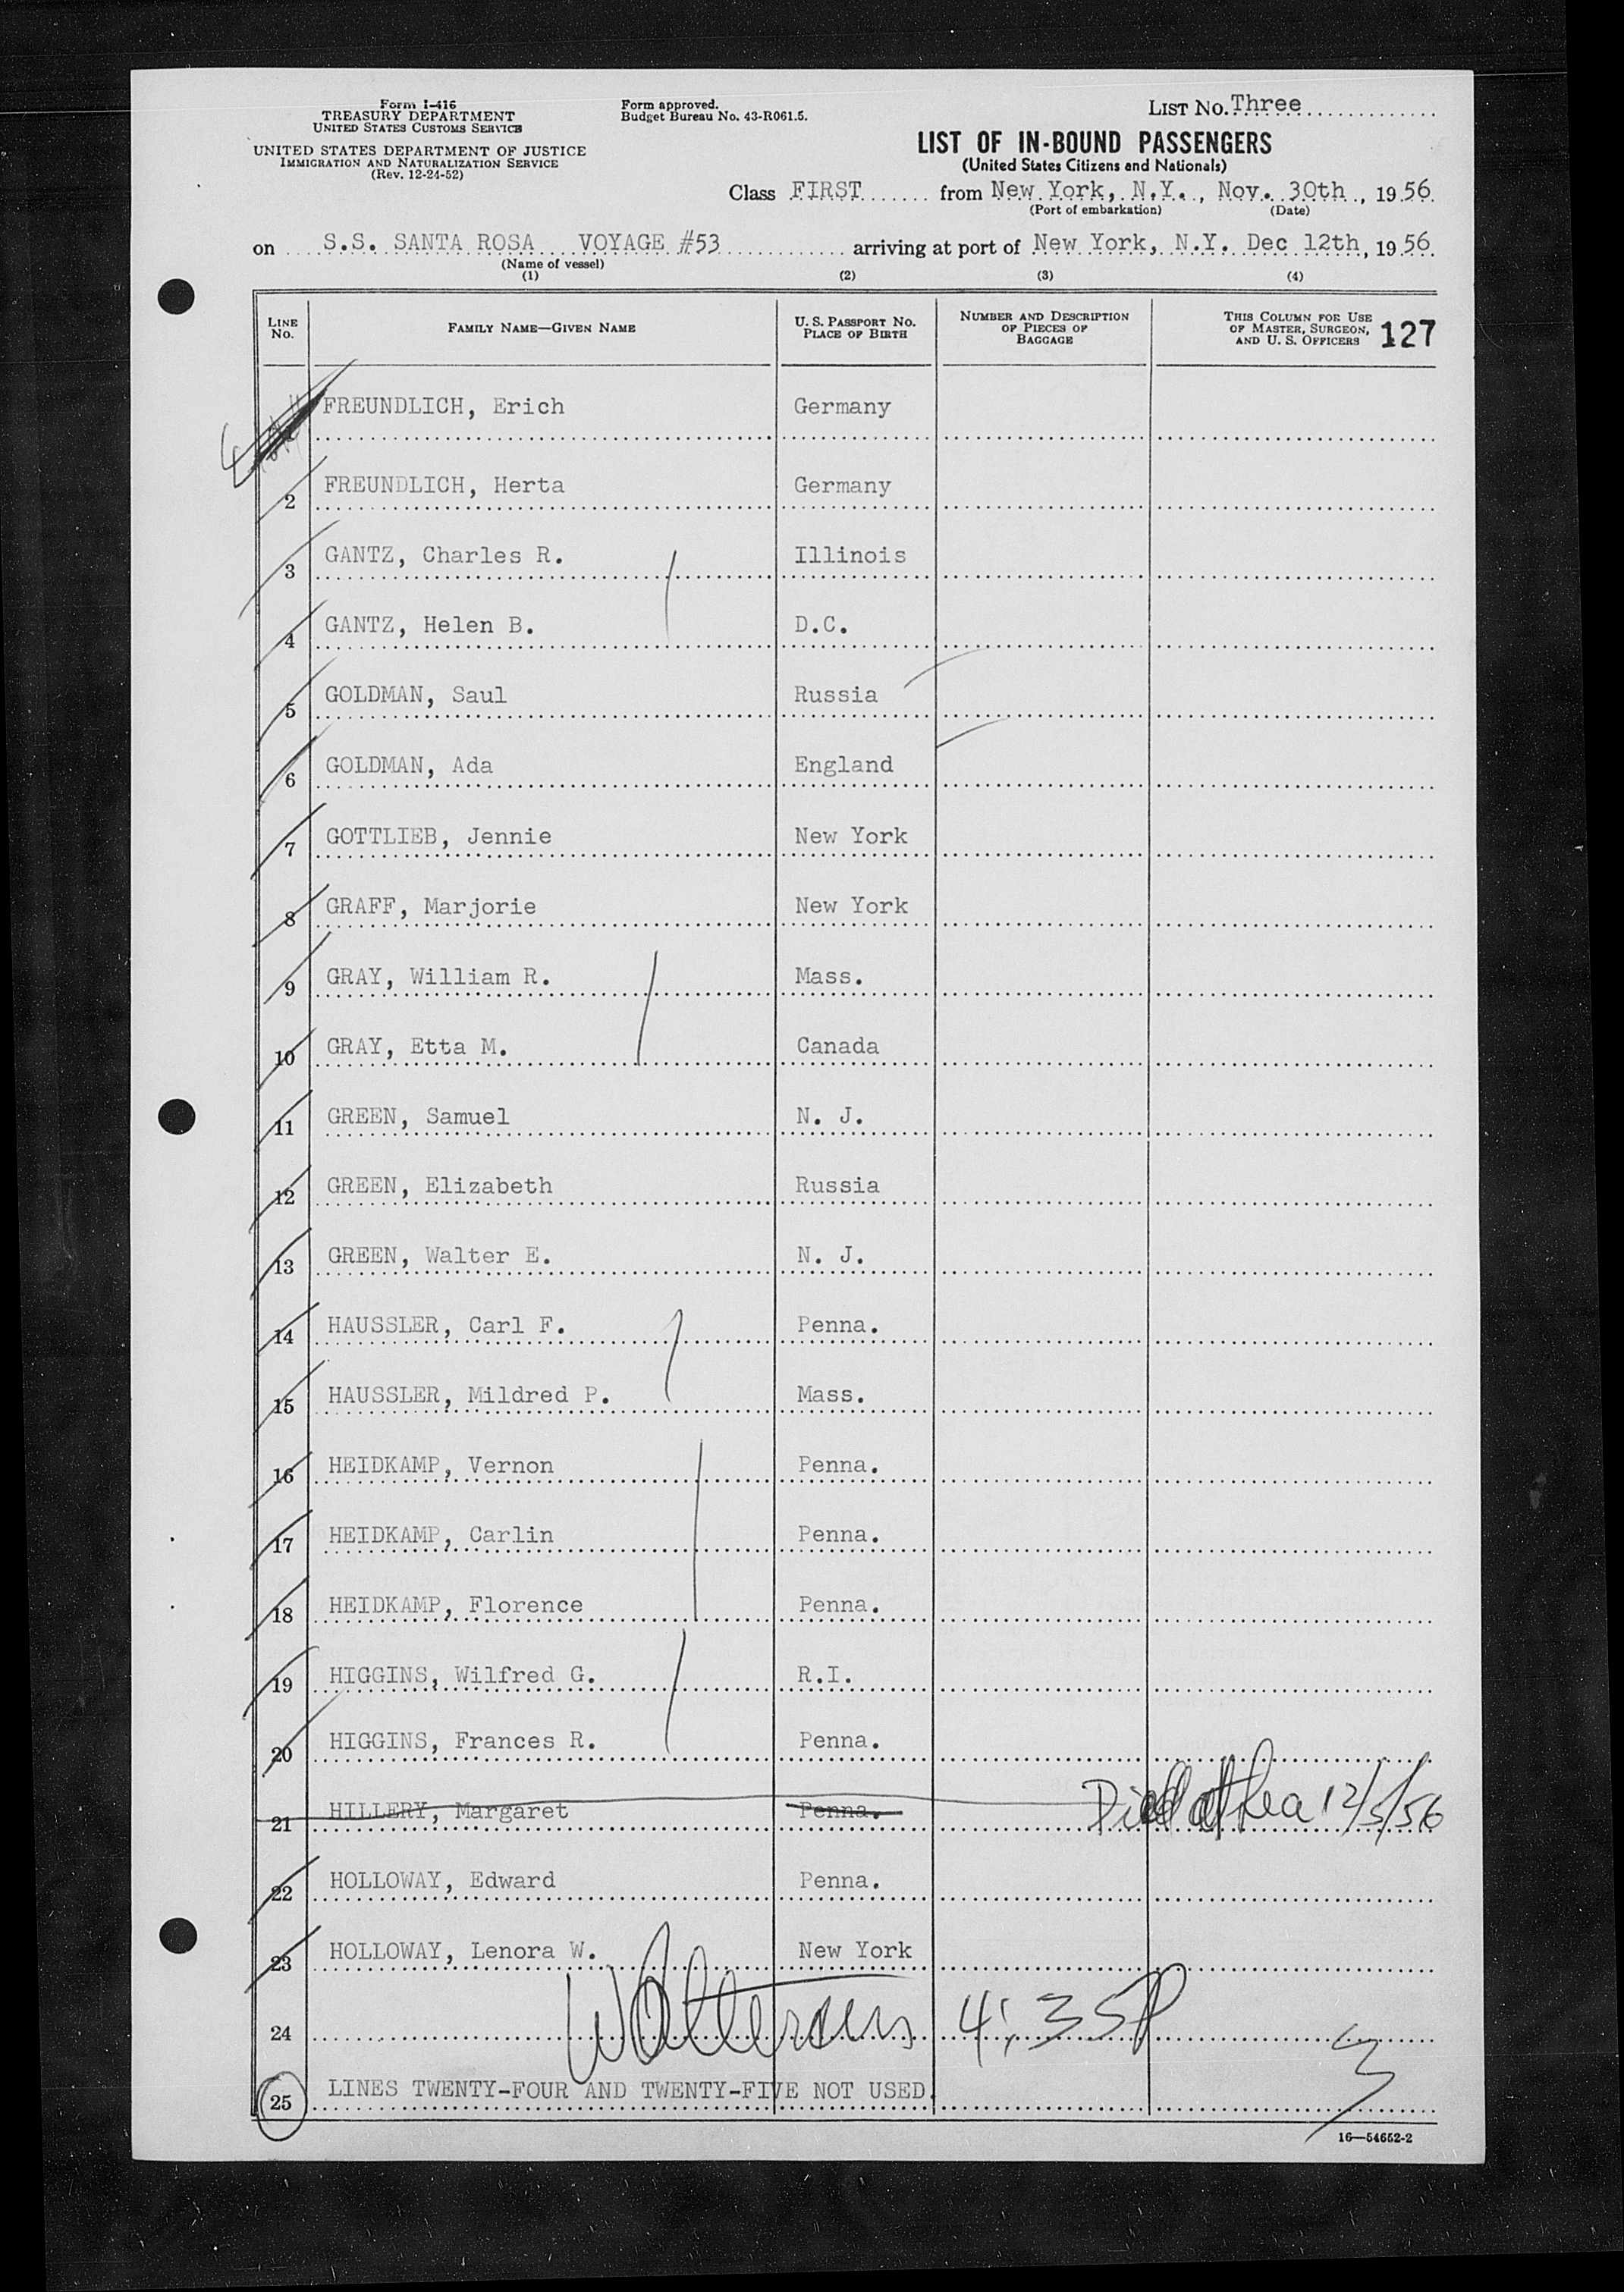 Form I-416
TREASURY DEPARTMENT
UNITED STATES CUSTOMS SERVICE
UNITED STATES DEPARTMENT OF JUSTICE
IMMIGRATION AND NATURALIZATION SERVICE
(Rev. 12-24-52)
Form approved.
Budget Bureau No. 43-R061.5.
LIST NO. Three
LIST OF IN-BOUND PASSENGERS
(United States Citizens and Nationals)
Class FIRST from New York, N.Y., Nov. 30th, 1956
(Port of embarkation) (Date)
on S.S. SANTA ROSA VOYAGE #53 arriving at port of New York, N.Y. Dec 12th, 1956
(Name of vessel)
(1) (2) (3) (4)
LINE NO. FAMILY NAME—GIVEN NAME U. S. PASSPORT NO. PLACE OF BIRTH NUMBER AND DESCRIPTION OF PIECES OF BAGGAGE THIS COLUMN FOR USE OF MASTER, SURGEON, AND U. S. OFFICERS 127
FREUNDLICH, Erich Germany
2 FREUNDLICH, Herta Germany
3 GANTZ, Charles R. Illinois
4 GANTZ, Helen B. D.C.
5 GOLDMAN, Saul Russia
6 GOLDMAN, Ada England
7 GOTTLIEB, Jennie New York
8 GRAFF, Marjorie New York
9 GRAY, William R. Mass.
10 GRAY, Etta M. Canada
11 GREEN, Samuel N. J.
12 GREEN, Elizabeth Russia
13 GREEN, Walter E. N. J.
14 HAUSSLER, Carl F. Penna.
15 HAUSSLER, Mildred P. Mass.
16 HEIDKAMP, Vernon Penna.
17 HEIDKAMP, Carlin Penna.
18 HEIDKAMP, Florence Penna.
19 HIGGINS, Wilfred G. R.I.
20 HIGGINS, Frances R. Penna.
21 HILLERY, Margaret Penna. Died at Sea 12/5/56
22 HOLLOWAY, Edward Penna.
23 HOLLOWAY, Lenora W. New York
24 4:35P
25 LINES TWENTY-FOUR AND TWENTY-FIVE NOT USED.
16—54652-2